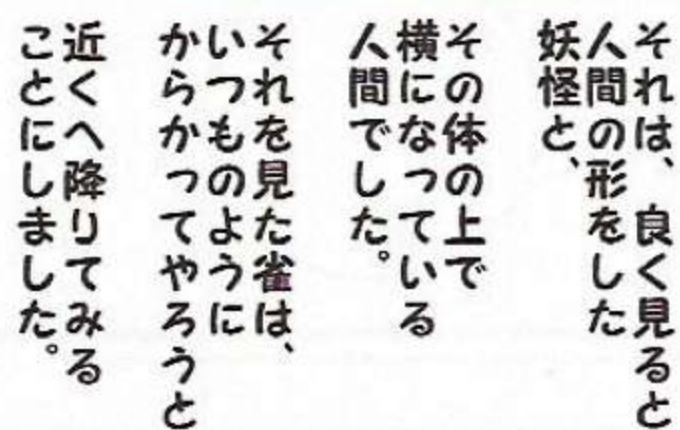 それは、良く見ると
人間の形をした
妖怪と、
その体の上で
横になっている
人間でした。
それを見た雀は、
いつものように
からかってやろうと
近くへ降りてみる
ことにしました。